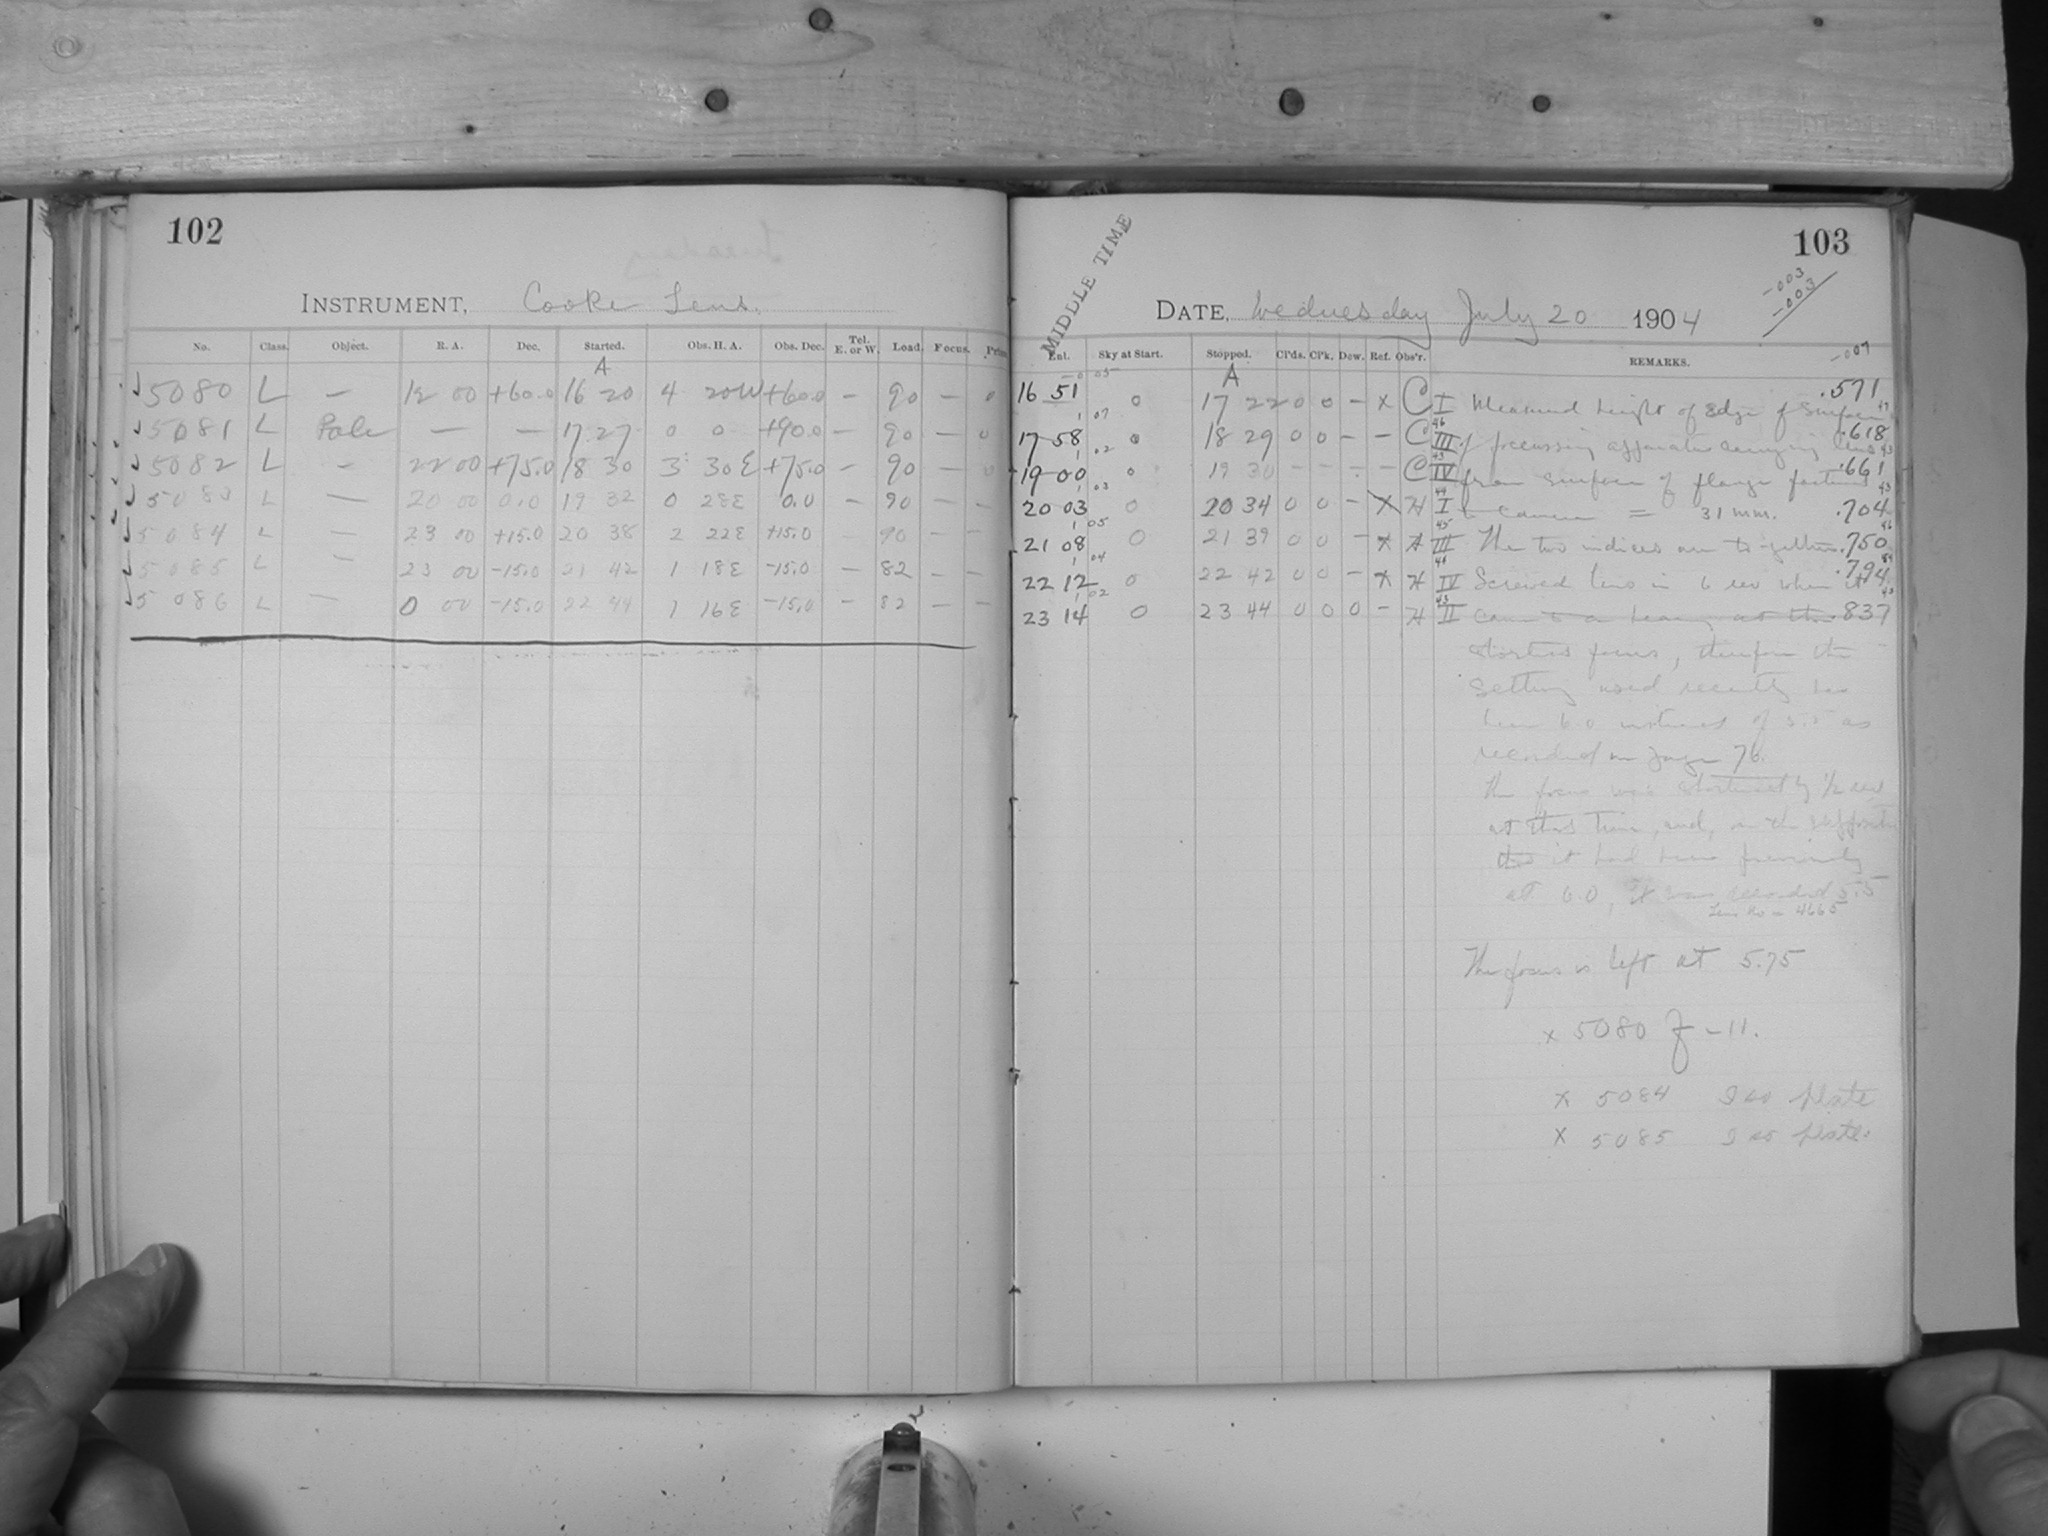 102
INSTRUMENT, Cooke Lens.
No. Class. Object. R. A. Dec. Started. Obs. H. A. Obs. Dec. Tel. E. or W. Load. Focus.
A
5080 L — 12 00 +60.0 16 20 4 20W +60.0 — 90 — 0
5081 L Pole — — 17 27 0 0 +90.0 — 90 — 0
5082 L — 22 00 +75.0 18 30 3 30E +75.0 — 90 — 0
5083 L — 20 00 0.0 19 32 0 28E 0.0 — 90 — —
5084 L — 23 00 +15.0 20 38 2 22E +15.0 90 — —
5085 L — 23 00 -15.0 21 42 1 18E -15.0 — 82 — —
5086 L — 0 00 -15.0 22 44 1 16E -15.0 — 82 — —
103
MIDDLE TIME
-003
-003
DATE, Wednesday July 20 1904
Ent. Sky at Start. Stopped. Cl'ds. Cl'k. Dew. Ref. Obs'r. REMARKS.
A
16 51 0 17 22 0 0 — x C I Measured height of edge of surface .571
17 58 0 18 29 0 0 — — C III of focussing apparatus carrying lens .618
19 00 0 19 30 — — — — C IV from surface of flange fastened .661
20 03 0 20 34 0 0 — X H I to camera = 31 mm. .704
21 08 0 21 39 0 0 — x H III The two indices are together .750
22 12 0 22 42 0 0 — x H IV Screwed lens in 6 rev when it .794
23 14 0 23 44 0 0 0 — H II came to a bearing at the .837
shortest focus, therefore the
setting used recently has
been 6.0 instead of 5.5 as
recorded on page 76.
The focus was shortened by 1/2 rev
at this time, and, on the
it had been previously
at 6.0, it was recorded 5.5
Lens No = 4665
The focus is left at 5.75
x 5080 f -11.
x 5084 plate
x 5085 plate.